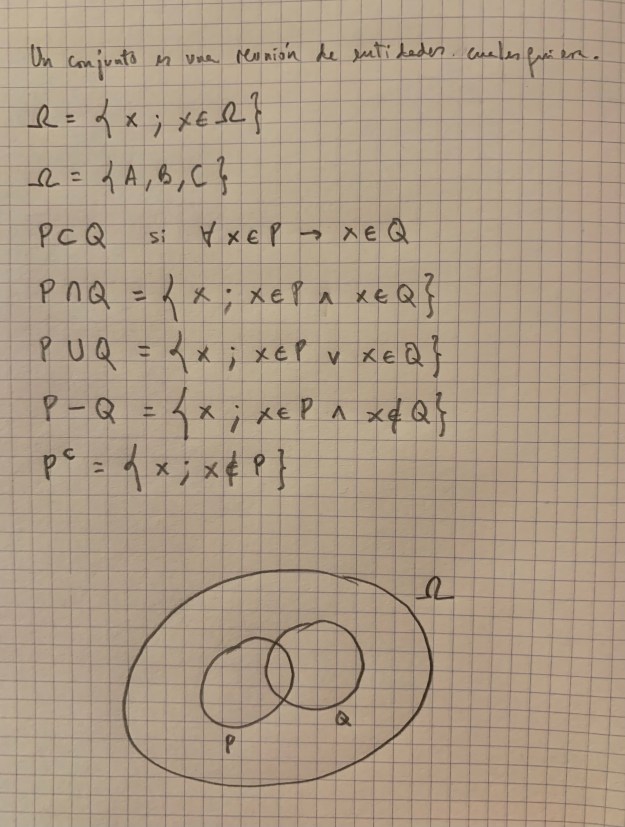 Un conjunto es una reunión de entidades cualesquiera.
Ω = { x ; x ∈ Ω }
Ω = { A, B, C }
P ⊂ Q si ∀ x ∈ P → x ∈ Q
P ∩ Q = { x ; x ∈ P ∧ x ∈ Q }
P ∪ Q = { x ; x ∈ P ∨ x ∈ Q }
P − Q = { x ; x ∈ P ∧ x ∉ Q }
Pᶜ = { x ; x ∉ P }
Ω
Q
P